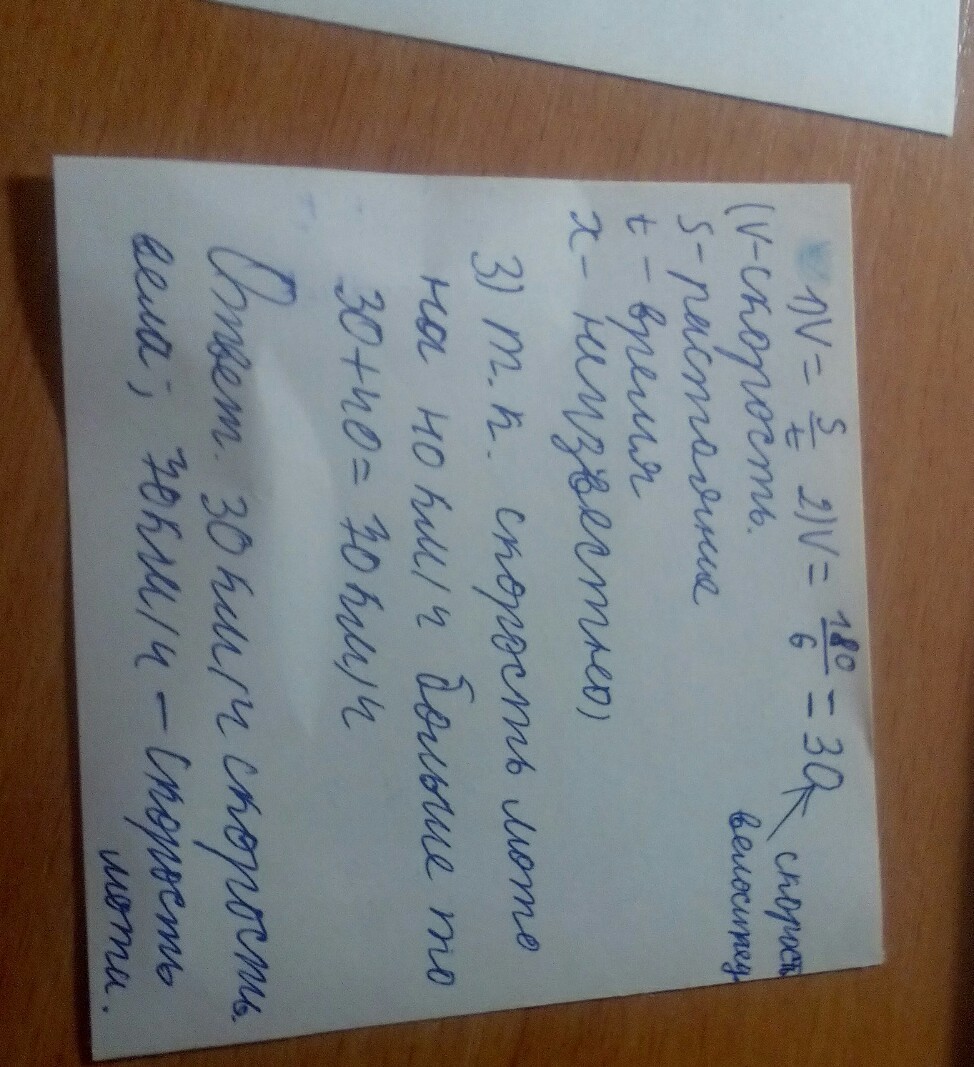 1) V = S/t 2) V = 180/6 = 30 ← скорость велосипед
(V - скорость.
S - растояние
t - время
x - неизвестно)
3) т.к. скорость мото
на 40 км/ч больше то
30+40=70 км/ч
Ответ. 30 км/ч скорость.
вела; 70км/ч - скорость
мота.